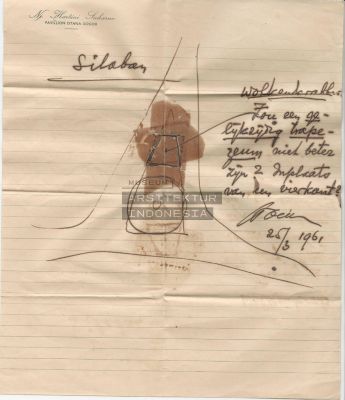 Ny. Hartini Sukarno
PAVILION ISTANA BOGOR
Silaban
Wolkenkrabber.
Zou een ge-
lijkzijdig trape-
zeum niet beter
zijn? Inplaats
van een vierkant?
25/3 1961
MUSEUM
ARSITEKTUR
INDONESIA